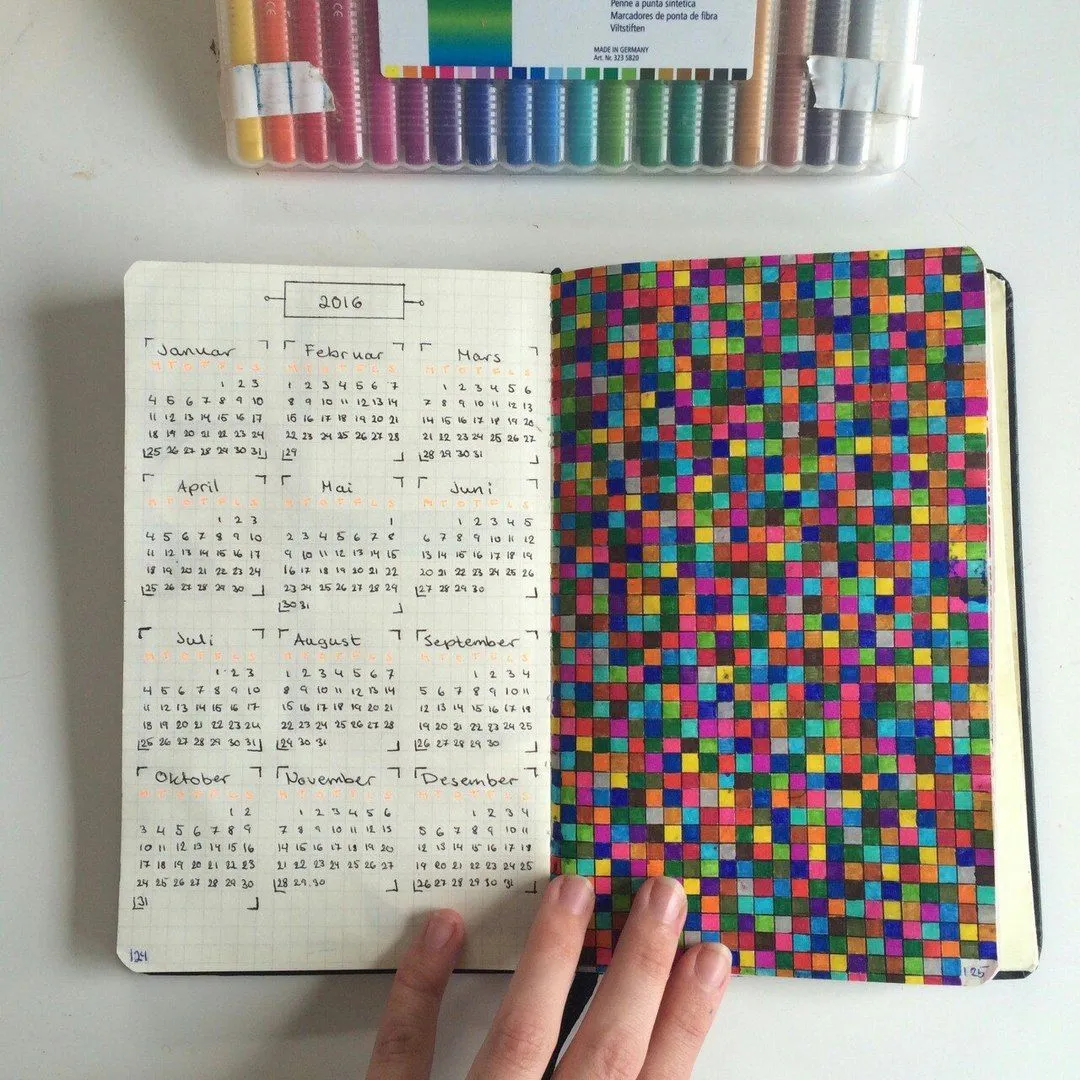 Penne a punta sintetica
Marcadores de ponta de fibra
Viltstiften
MADE IN GERMANY
Art. Nr. 323 SB20
2016
Januar
M T O T F L S
1 2 3
4 5 6 7 8 9 10
11 12 13 14 15 16 17
18 19 20 21 22 23 24
25 26 27 28 29 30 31
Februar
M T O T F L S
1 2 3 4 5 6 7
8 9 10 11 12 13 14
15 16 17 18 19 20 21
22 23 24 25 26 27 28
29
Mars
M T O T F L S
1 2 3 4 5 6
7 8 9 10 11 12 13
14 15 16 17 18 19 20
21 22 23 24 25 26 27
28 29 30 31
April
M T O T F L S
1 2 3
4 5 6 7 8 9 10
11 12 13 14 15 16 17
18 19 20 21 22 23 24
25 26 27 28 29 30
Mai
M T O T F L S
1
2 3 4 5 6 7 8
9 10 11 12 13 14 15
16 17 18 19 20 21 22
23 24 25 26 27 28 29
30 31
Juni
M T O T F L S
1 2 3 4 5
6 7 8 9 10 11 12
13 14 15 16 17 18 19
20 21 22 23 24 25 26
27 28 29 30
Juli
M T O T F L S
1 2 3
4 5 6 7 8 9 10
11 12 13 14 15 16 17
18 19 20 21 22 23 24
25 26 27 28 29 30 31
August
M T O T F L S
1 2 3 4 5 6 7
8 9 10 11 12 13 14
15 16 17 18 19 20 21
22 23 24 25 26 27 28
29 30 31
September
M T O T F L S
1 2 3 4
5 6 7 8 9 10 11
12 13 14 15 16 17 18
19 20 21 22 23 24 25
26 27 28 29 30
Oktober
M T O T F L S
1 2
3 4 5 6 7 8 9
10 11 12 13 14 15 16
17 18 19 20 21 22 23
24 25 26 27 28 29 30
31
November
M T O T F L S
1 2 3 4 5 6
7 8 9 10 11 12 13
14 15 16 17 18 19 20
21 22 23 24 25 26 27
28 29 30
Desember
M T O T F L S
1 2 3 4
5 6 7 8 9 10 11
12 13 14 15 16 17 18
19 20 21 22 23 24 25
26 27 28 29 30 31
124
125